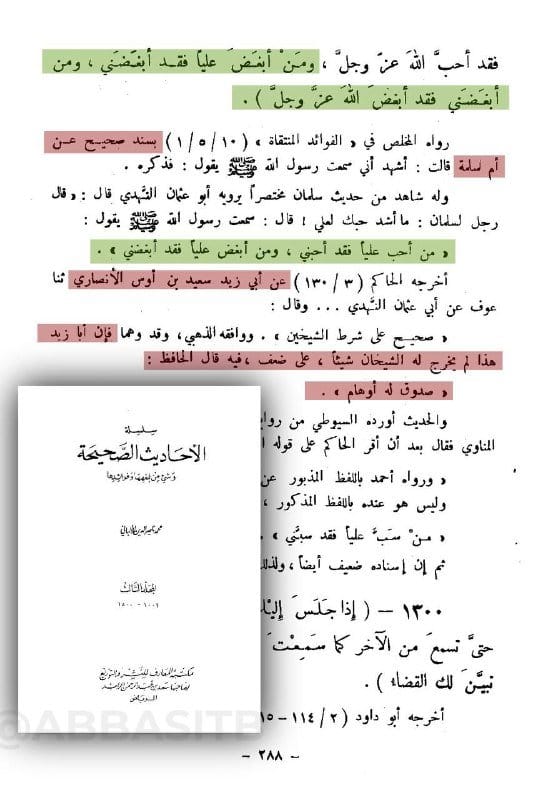 فقد أحبَّ اللهَ عزّ وجلَّ ، ومَنْ أبغضَ علياً فقد أبغضَني ، ومن
أبغَضَني فقد أبغضَ اللهَ عزَّ وجلَّ ) .
رواه المخلص في « الفوائد المنتقاة » ( ١٠ / ٥ / ١ ) بسند صحيح عن
أم سلمة قالت : أشهد أني سمعت رسول الله ﷺ يقول : فذكره .
وله شاهد من حديث سلمان مختصراً يرويه أبو عثمان النَّهدي قال : « قال
رجل لسلمان : ما أشد حبك لعلي ! قال : سمعت رسول الله ﷺ يقول :
« من أحب علياً فقد أحبني ، ومن أبغض علياً فقد أبغضني » .
أخرجه الحاكم ( ٣ / ١٣٠ ) عن أبي زيد سعيد بن أوس الأنصاري ثنا
عوف عن أبي عثمان النَّهدي ... وقال :
« صحيح على شرط الشيخين » . ووافقه الذهبي ، وقد وهما فإن أبا زيد
هذا لم يخرج له الشيخان شيئاً ، على ضعف ، فيه قال الحافظ :
« صدوق له أوهام » .
والحديث أورده السيوطي من
المناوي فقال بعد أن أقر الحاكم على قوله
« ورواه أحمد باللفظ المذبور عن
وليس هو عنده باللفظ المذكور ،
« مَنْ سَبَّ علياً فقد سبَّني » .
ثم إن إسناده ضعيف أيضاً ،
١٣٠٠ – ( إذا جَلَسَ
حتىَّ تسمعَ من الآخر كما سَمِعْتَ
تبيَّنَ لك القضاءُ ) .
أخرجه أبو داود ( ٢ / ١١٤ –
سلسلة
الأحاديث الصحيحة
وشيء من فقهها وفوائدها
محمد ناصر الدين الألباني
المجلد الثالث
١٠٠١ - ١٥٠٠
مكتبة المعارف للنشر والتوزيع
لصاحبها سعد بن عبد الرحمن الراشد
الرياض
@ABBASITE
– ٢٨٨ –